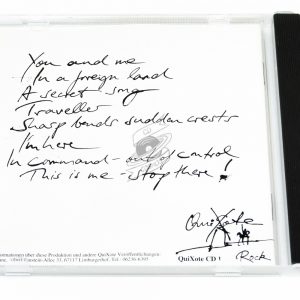 You and me
In a foreign land
A secret song
Traveller
Sharp bends sudden crests
I'm here
In command - out of control
This is me - stop there!
QuiXote
Informationen über diese Produktion und andere QuiXote Veröffentlichungen:
Albert-Einstein-Allee 35, 67117 Limburgerhof. Tel. 06236 6395
QuiXote CD 1
Rock